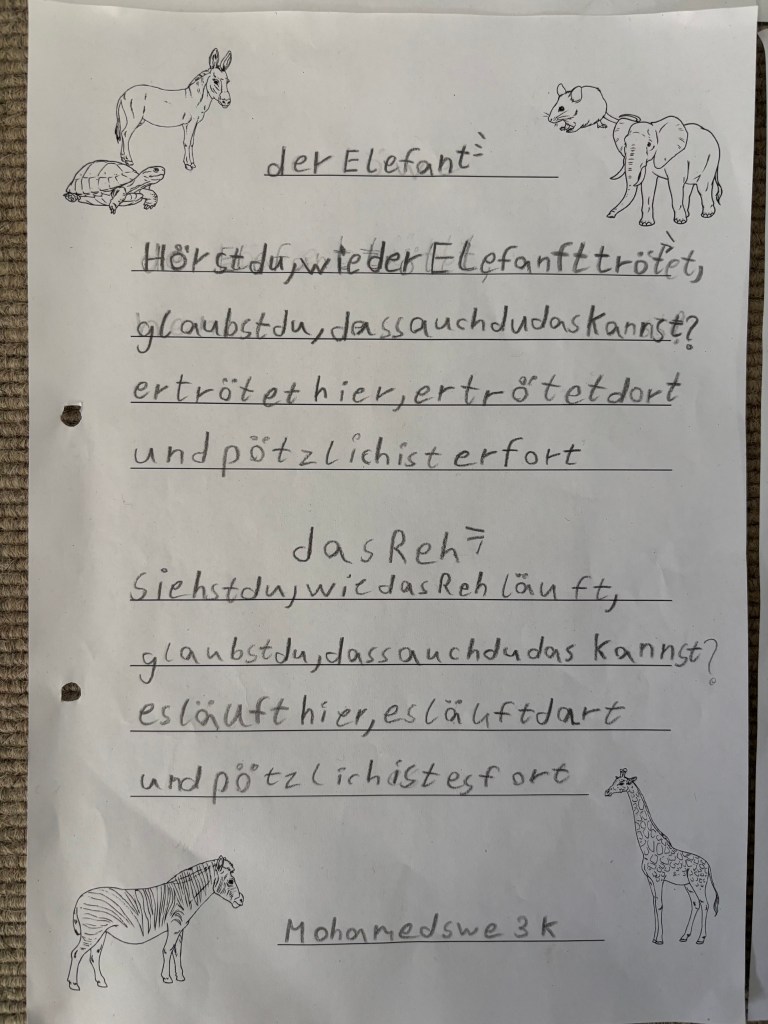 der Elefant
Hörst du, wie der Elefanft trötet,
glaubst du, dass auch du das kannst?
er trötet hier, er trötet dort
und pötzlich ist er fort
das Reh
Siehst du, wie das Reh läuft,
glaubst du, dass auch du das kannst?
es läuft hier, es läuft dart
und pötzlich ist es fort
Mohamedswe 3K